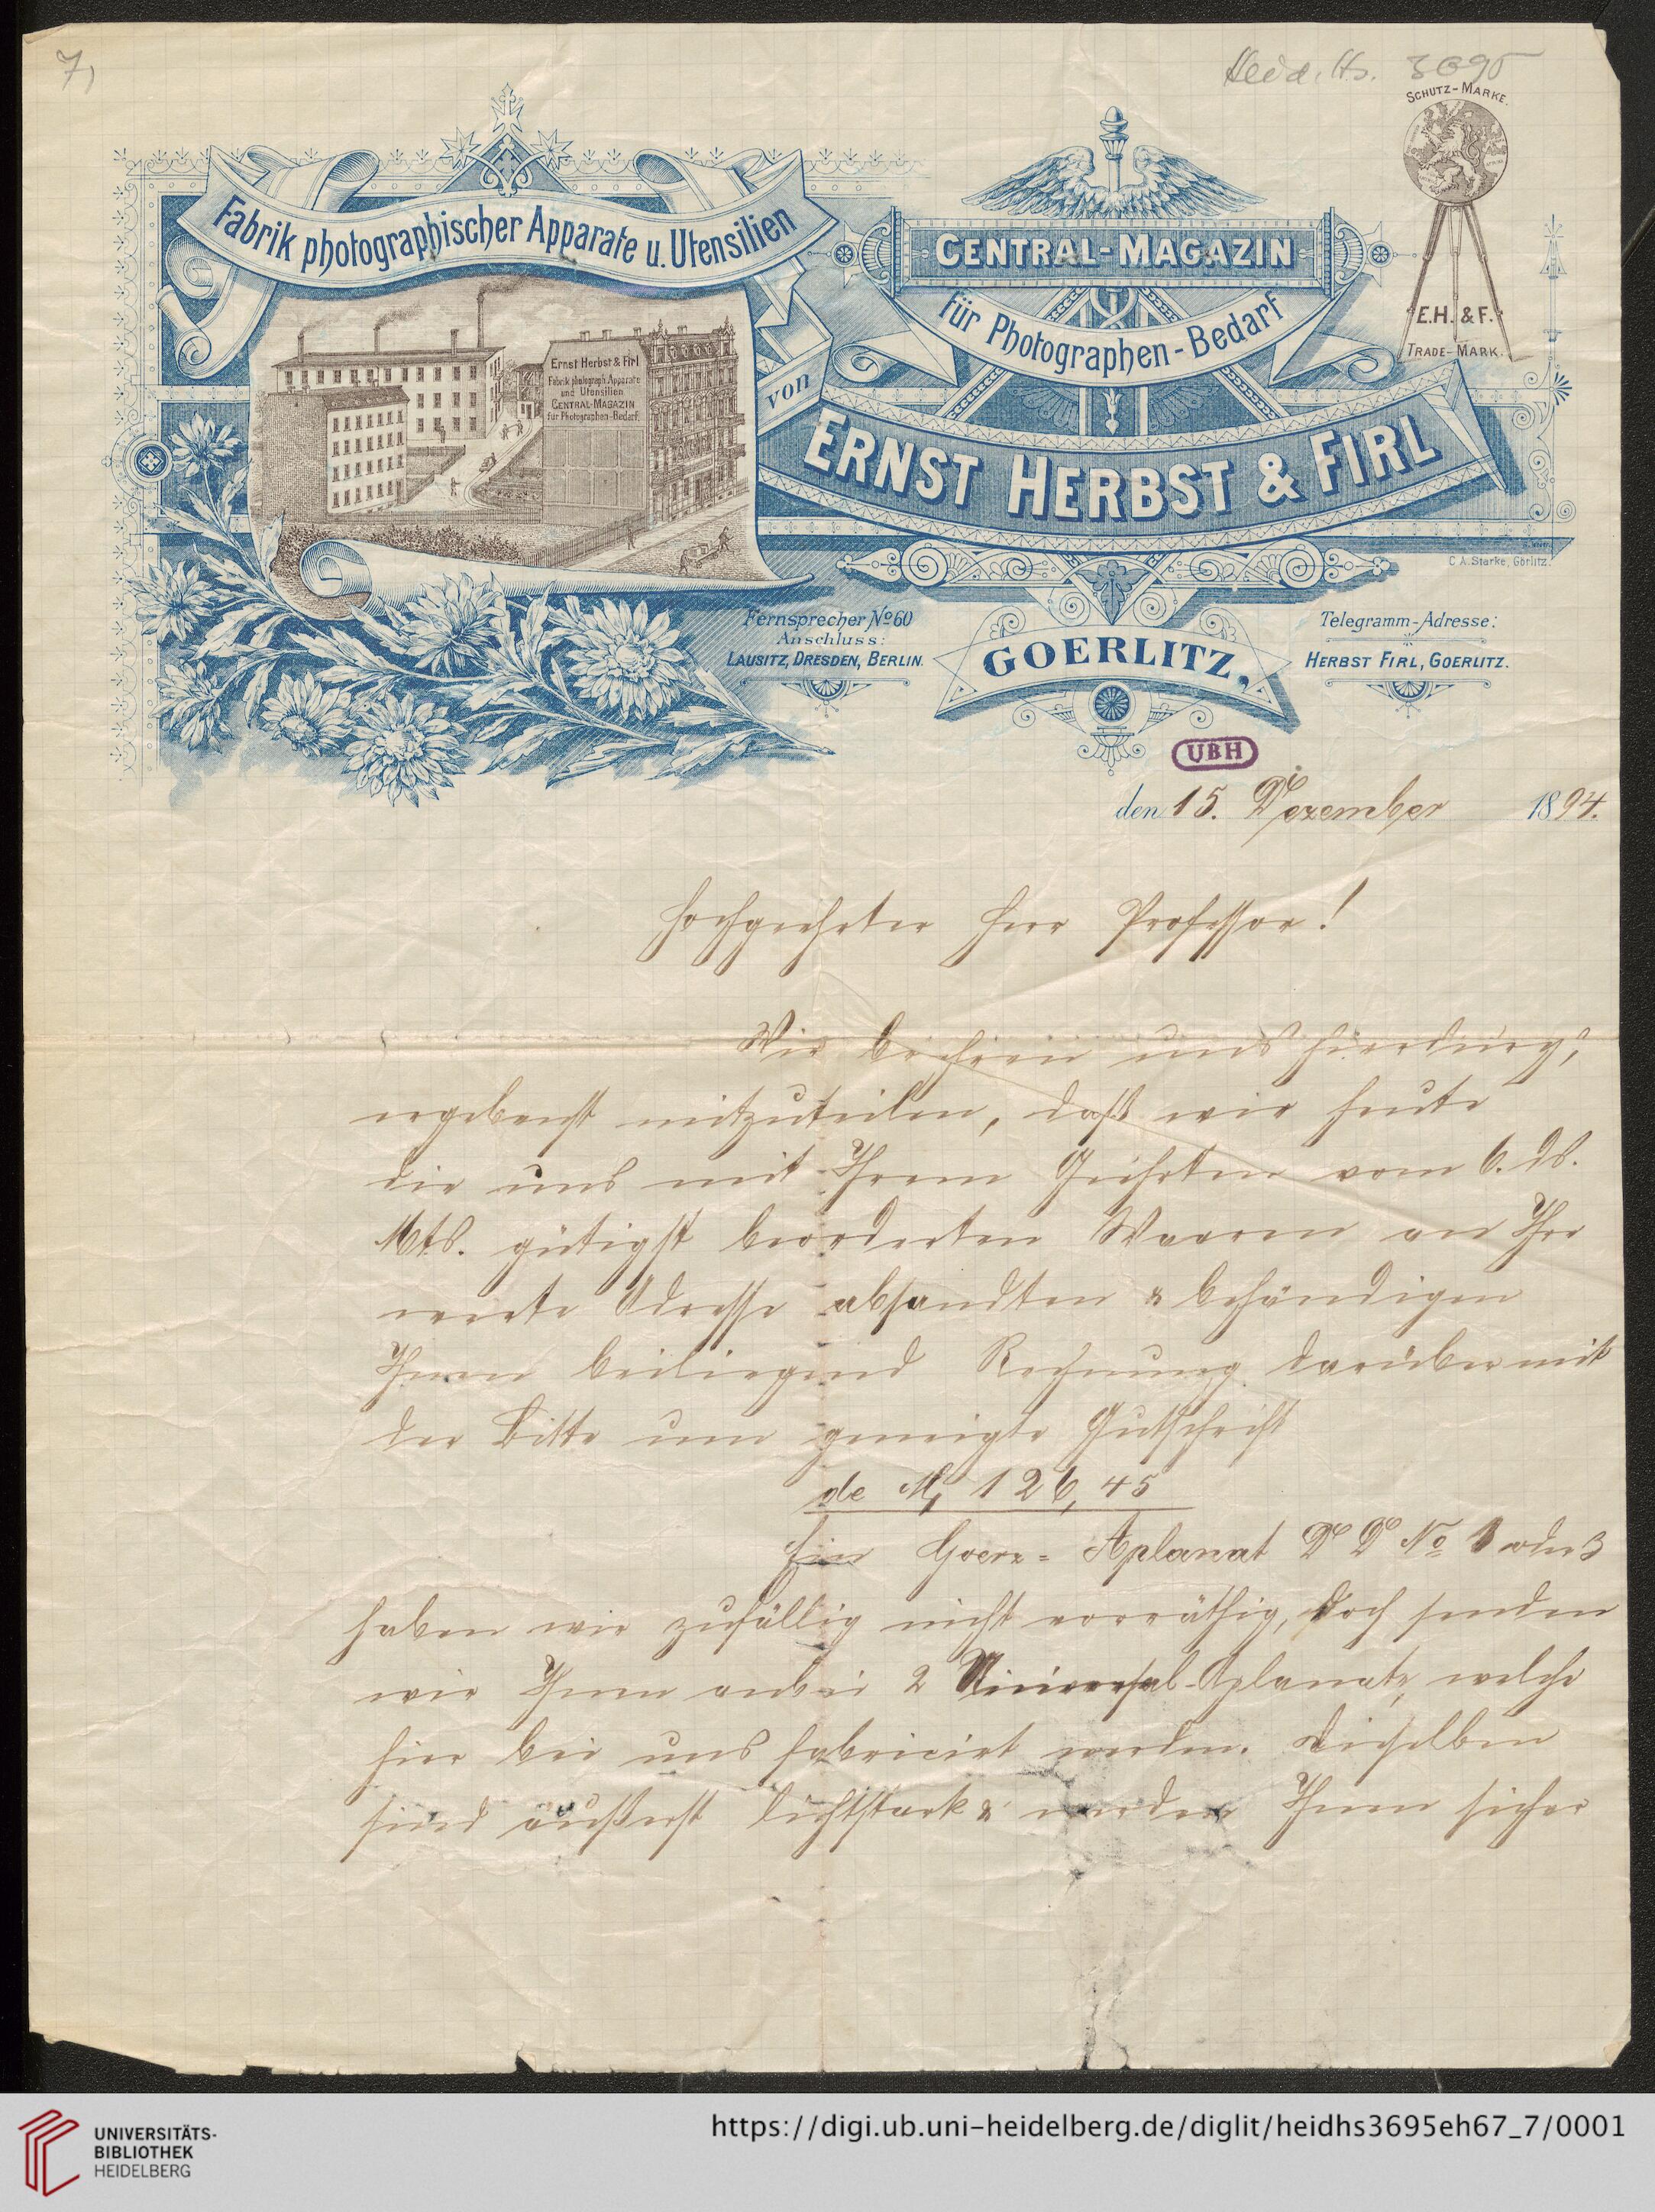 7,
Heid. Hs. 3695
SCHUTZ-MARKE.
Fabrik photographischer Apparate u. Utensilien
CENTRAL-MAGAZIN
für Photographen-Bedarf
E.H. & F.
TRADE-MARK.
Ernst Herbst & Firl
Fabrik photograph. Apparate
und Utensilien
CENTRAL-MAGAZIN
für Photographen-Bedarf.
von
ERNST HERBST & FIRL
C. A. Starke, Görlitz.
Fernsprecher No 60
Anschluss:
LAUSITZ, DRESDEN, BERLIN.
GOERLITZ,
Telegramm-Adresse:
HERBST FIRL, GOERLITZ.
UBH
den 15. Dezember 1894.
Hochgeehrter Herr Professor!
Wir beehren uns hierdurch,
ergebenst mitzuteilen, daß wir heute
die uns mit Ihrem Geehrten vom 6. ds.
Mts. gütigst beorderten Waaren an Ihre
werte Adresse absandten & behändigen
Ihnen beiliegend Rechnung darüber mit
der Bitte um geneigte Gutschrift
de M 126,45
Ein Goerz-Aplanat No oder 3
haben wir zufällig nicht vorräthig, doch senden
wir Ihnen anbei 2 Universal-Aplanate, welche
hier bei uns fabricirt werden. Dieselben
sind äußerst lichtstark & werden Ihnen sicher
UNIVERSITÄTS-
BIBLIOTHEK
HEIDELBERG
https://digi.ub.uni-heidelberg.de/diglit/heidhs3695eh67_7/0001